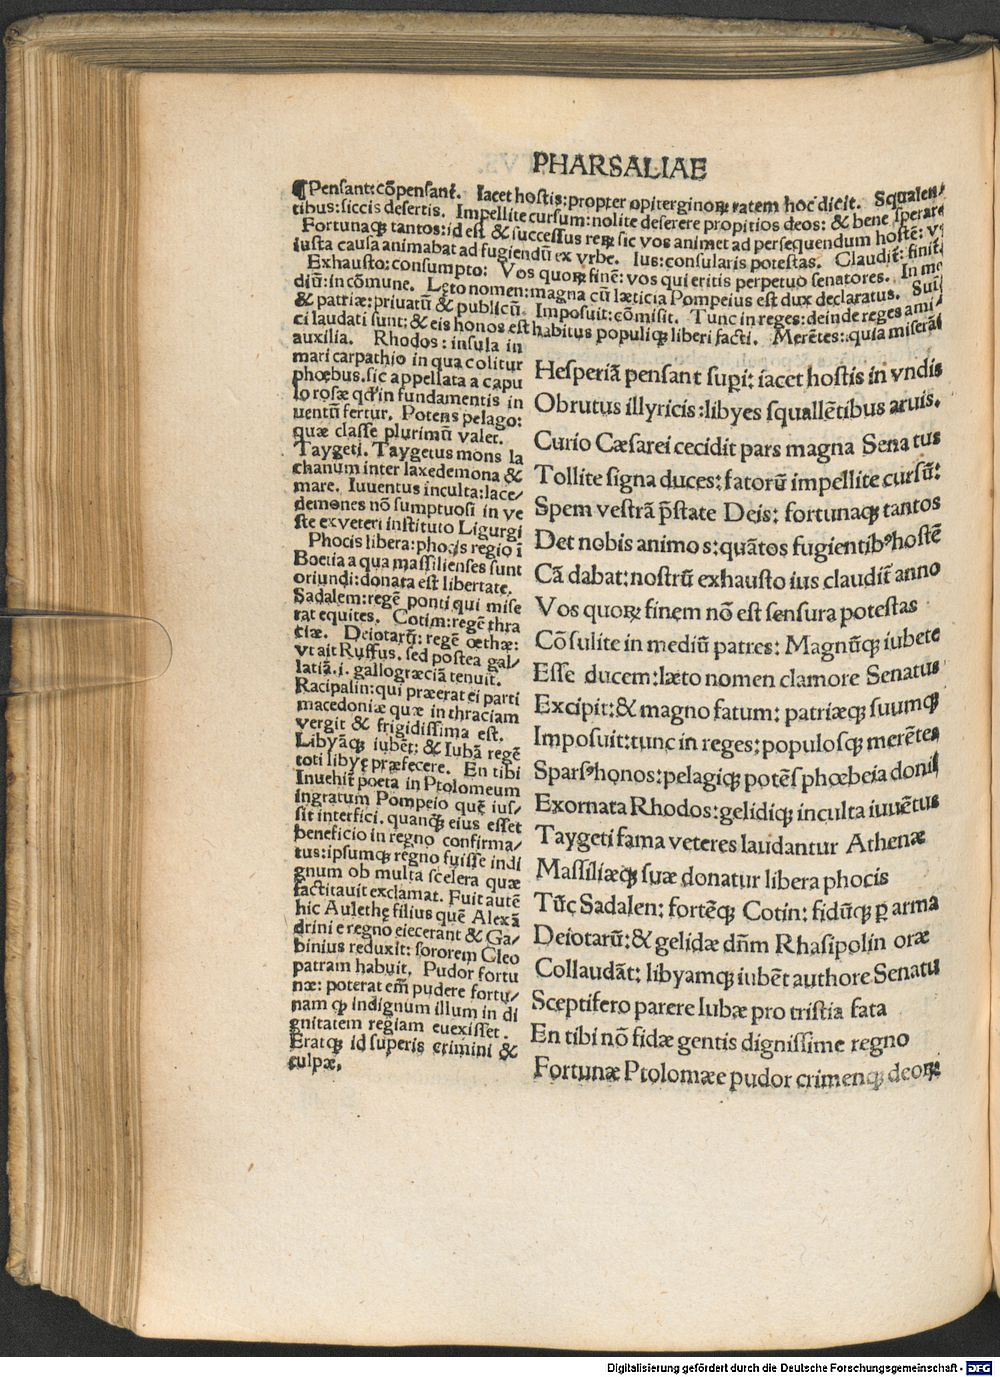 PHARSALIAE
¶Pensant:cõpensant. Iacet hostis:propter opiterginoꝝ ratem hoc dicit. Squalen/
tibus:siccis desertis. Impellite cursum:nolite deserere propitios deos: & bene sperare
Fortunaqꝫ tantos:id est & successus reꝝ sic vos animet ad persequendum hostẽ: vt
iusta causa animabat ad fugiendũ ex vrbe. Ius:consularis potestas. Claudit̃: finit̃
Exhausto:consumpto: Vos quoꝝ finẽ: vos qui eritis perpetuo senatores. In me
diũ:in cõmune. Lęto nomen:magna cũ læticia Pompeius est dux declaratus. Suũ
& patriæ:priuatũ & publicũ Imposuit:cõmisit. Tunc in reges:deinde reges ami/
ci laudati sunt:& eis honos est habitus populiqꝫ liberi facti. Merẽtes:quia miserãt
auxilia. Rhodos: insula in
mari carpathio in qua colitur
phœbus.sic appellata a capu
lo rosæ qd' in fundamentis in
uentũ fertur. Potens pelago:
quæ classe plurimũ valet.
Taygeti. Taygetus mons la
chanum inter laxedemona &
mare. Iuuentus inculta:lace/
demones nõ sumptuosi in ve
ste ex veteri instituto Ligurgi
Phocis libera:phocis regio ĩ
Boetia a qua massilienses sunt
oriundi:donata est libertate.
Sadalem:regẽ ponti qui mise
rat equites. Cotim:regẽ thra
ciæ. Deiotarũ: regẽ œthæ:
vt ait Ruffus. sed postea gal/
latiã.i. gallogræciã tenuit.
Racipalin:qui præerat ei parti
macedoniæ quæ in thraciam
vergit & frigidissima est.
Libyãqꝫ iubẽt: & Iubã regẽ
toti libyę præfecere. En tibi
Inuehit̃ poeta in Ptolomeum
ingratum Pompeio quẽ ius/
sit interfici. quanqꝫ eius esset
beneficio in regno confirma/
tus:ipsumqꝫ regno fuisse indi
gnum ob multa scelera quæ
factitauit exclamat. Fuit autẽ
hic Aulethę filius quẽ Alexã
drini e regno eiecerant & Ga/
binius reduxit: sororem Cleo
patram habuit. Pudor fortu
næ: poterat em̃ pudere fortu/
nam qꝫ indignum illum in di
gnitatem regiam euexisset.
Eratqꝫ id superis crimini &
culpæ.
Hesperiã pensant supi: iacet hostis in vndis
Obrutus illyricis:libyes squallẽtibus aruis.
Curio Cæsarei cecidit pars magna Senatus
Tollite signa duces: fatorũ impellite cursũ:
Spem vestrã p̃state Deis: fortunaqꝫ tantos
Det nobis animos:quãtos fugientibꝰ hostẽ
Cã dabat:nostrũ exhausto ius claudit̃ anno
Vos quoꝝ finem nõ est sensura potestas
Cõsulite in mediũ patres: Magnũqꝫ iubete
Esse ducem:læto nomen clamore Senatus
Excipit:& magno fatum: patriæqꝫ suumqꝫ
Imposuit:tunc in reges: populosqꝫ merẽtes
Sparsꝰ honos:pelagiqꝫ potẽs phœbeia donis
Exornata Rhodos:gelidiqꝫ inculta iuuẽtus
Taygeti fama veteres laudantur Athenæ
Massiliæqꝫ suæ donatur libera phocis
Tũc Sadalen: fortẽqꝫ Cotin: fidũqꝫ ꝑ arma
Deiotarũ:& gelidæ dñm Rhasipolin oræ
Collaudãt: libyamqꝫ iubẽt authore Senatu
Sceptifero parere Iubæ pro tristia fata
En tibi nõ fidæ gentis dignissime regno
Fortunæ Ptolomæe pudor crimenqꝫ deoꝝ
Digitalisierung gefördert durch die Deutsche Forschungsgemeinschaft - DFG